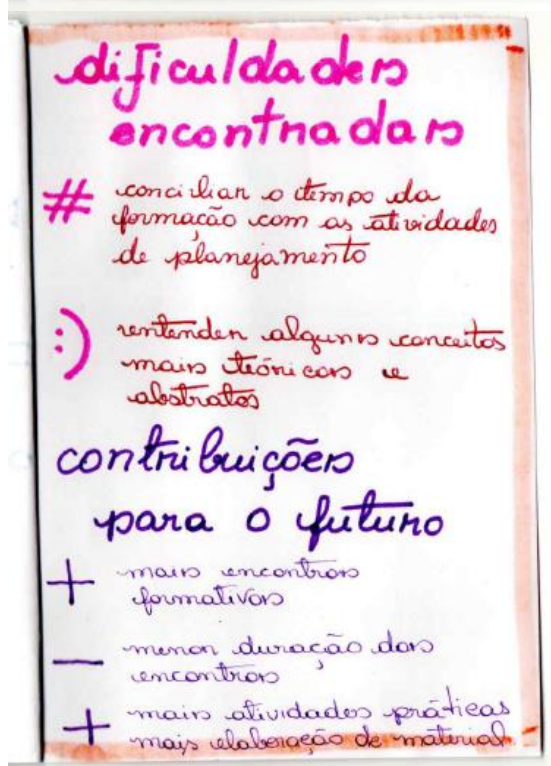 dificuldades
encontradas
# conciliar o tempo da
formação com as atividades
de planejamento
:) entender alguns conceitos
mais teóricos e
abstratos
contribuições
para o futuro
+ mais encontros
formativos
— menor duração dos
encontros
+ mais atividades práticas
mais elaboração de material